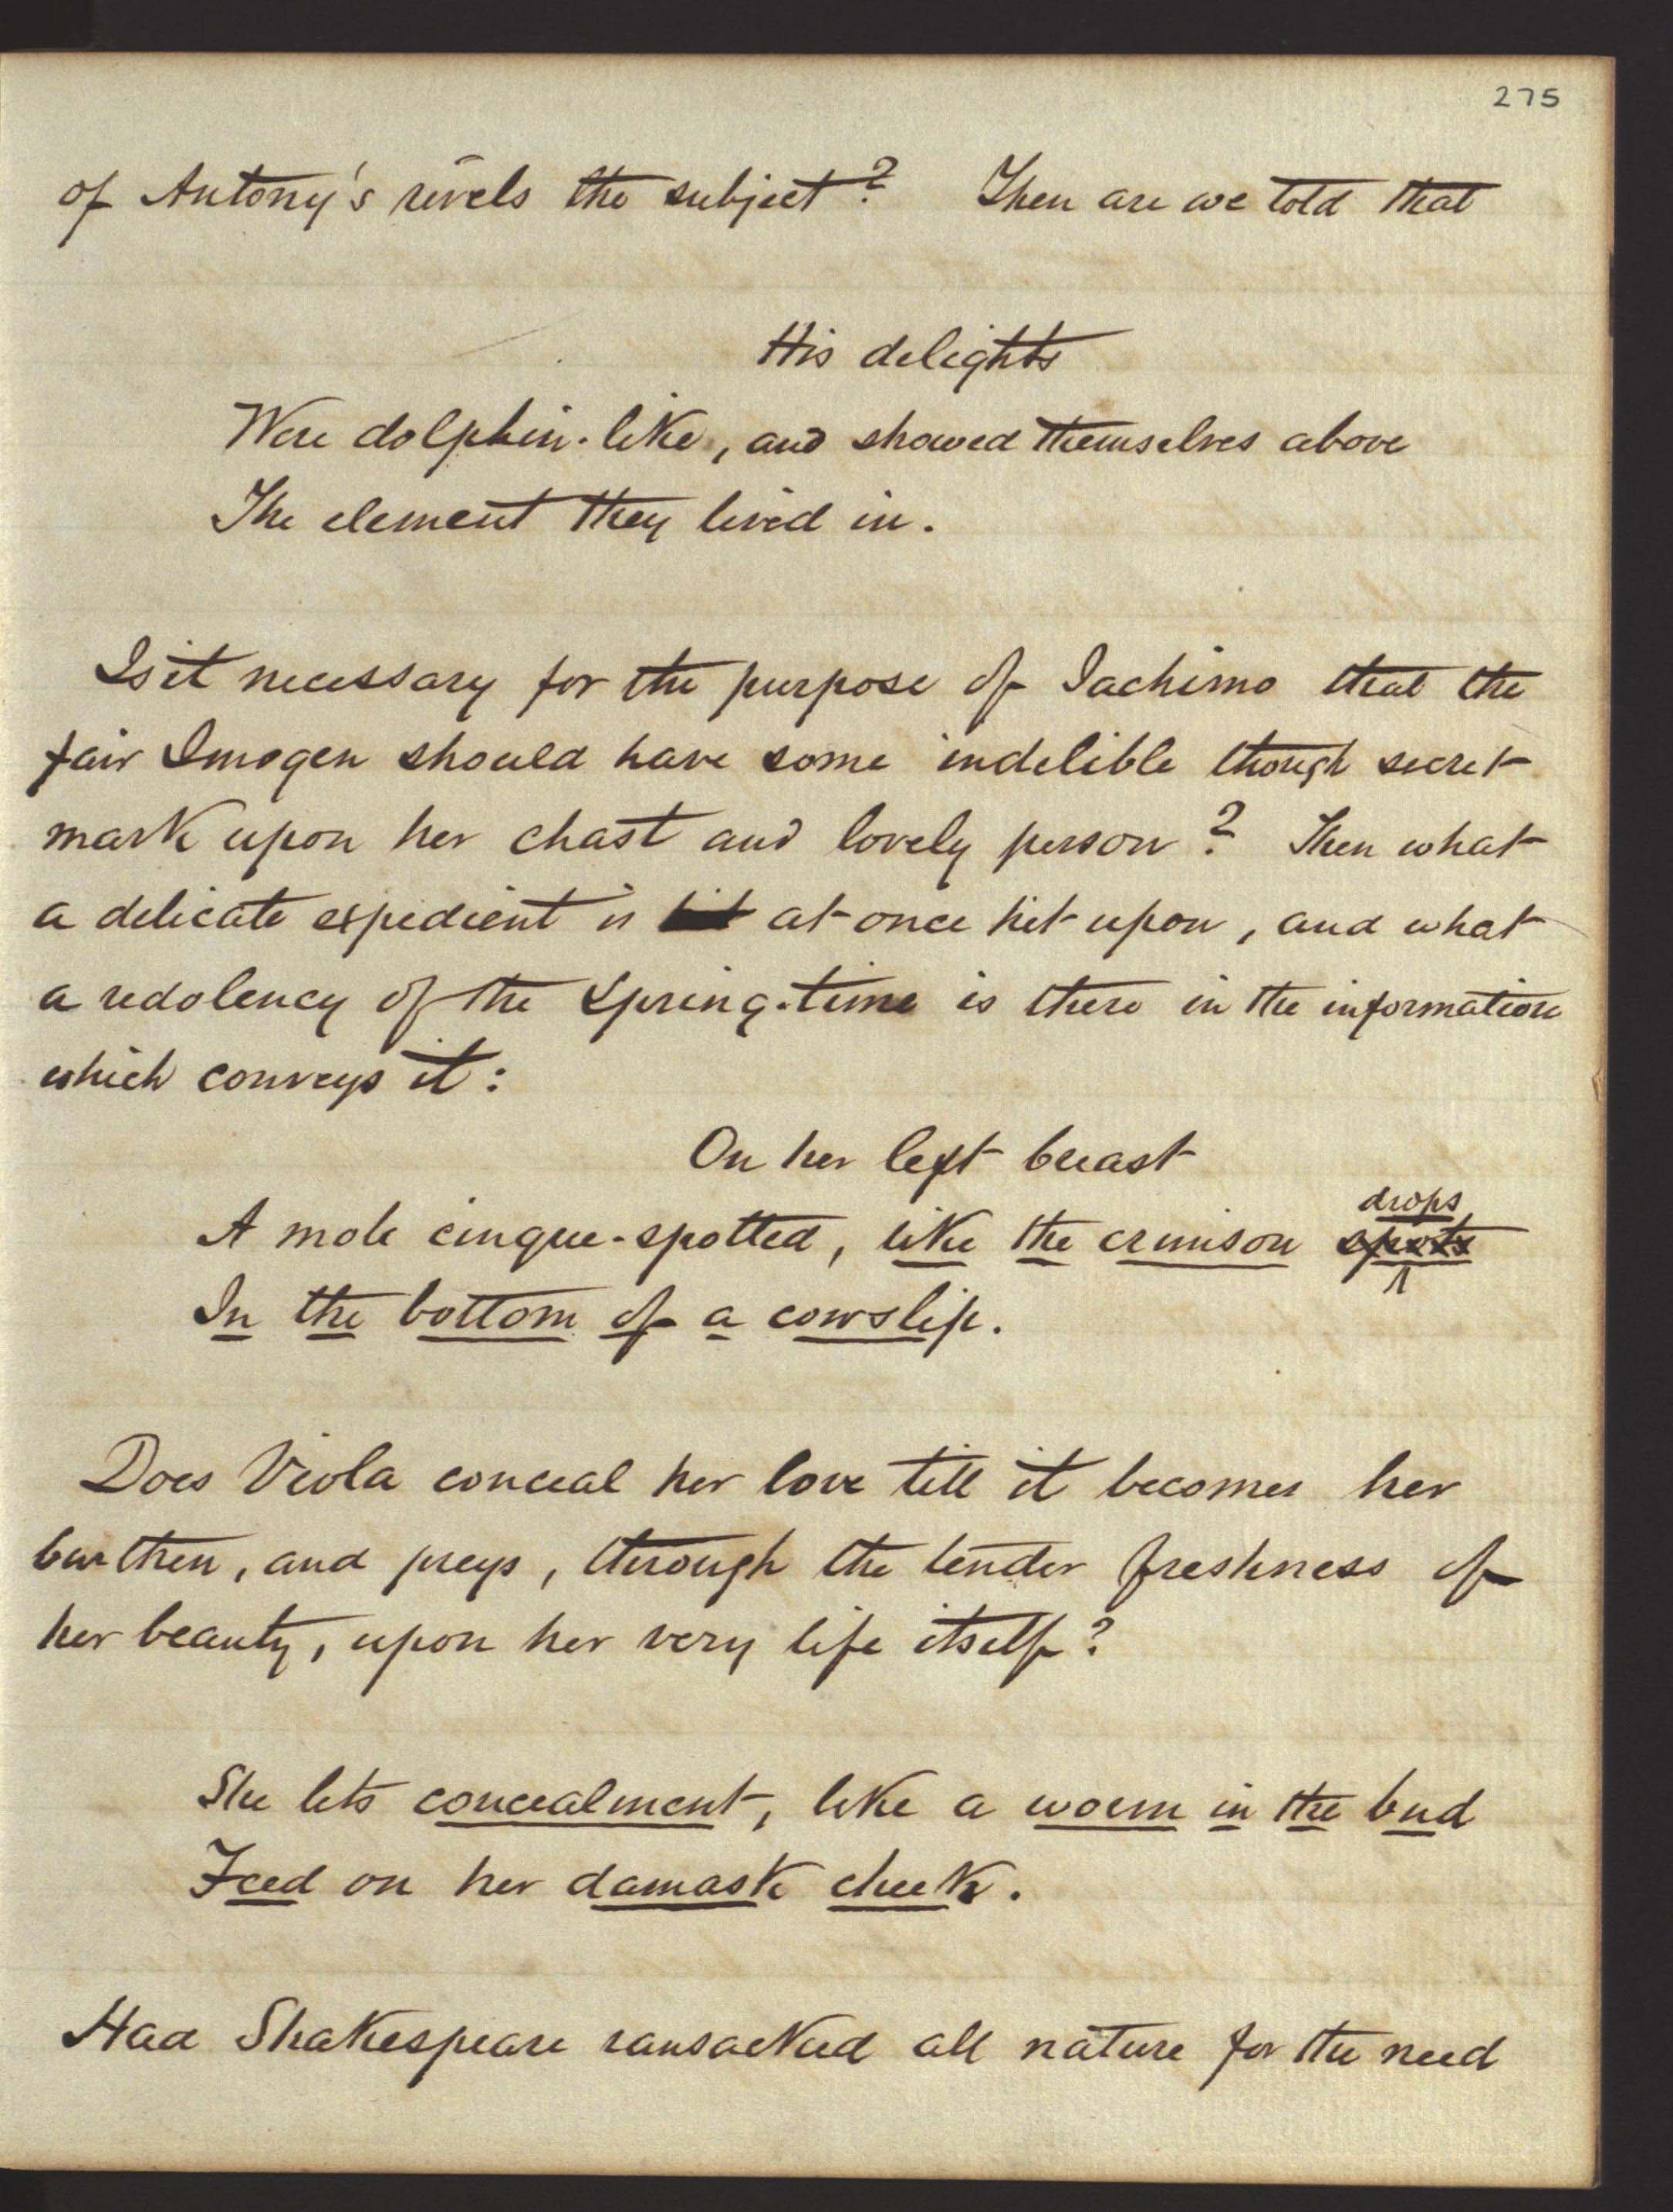 275
of Antony's revels the subject? Then are we told that
His delights
Were dolphin-like, and showed themselves above
The element they lived in.
Is it necessary for the purpose of Iachimo that the
fair Imogen should have some indelible though secret
mark upon her chast and lovely person? Then what
a delicate expedient is hit at once hit upon, and what
a redolency of the Spring-time is there in the information
which conveys it:
On her left breast
drops
A mole cinque-spotted, like the crimson spots
In the bottom of a cowslip.
Does Viola conceal her love till it becomes her
burthen, and preys, through the tender freshness of
her beauty, upon her very life itself?
She lets concealment, like a worm in the bud
Feed on her damask cheek.
Had Shakespeare ransacked all nature for the need